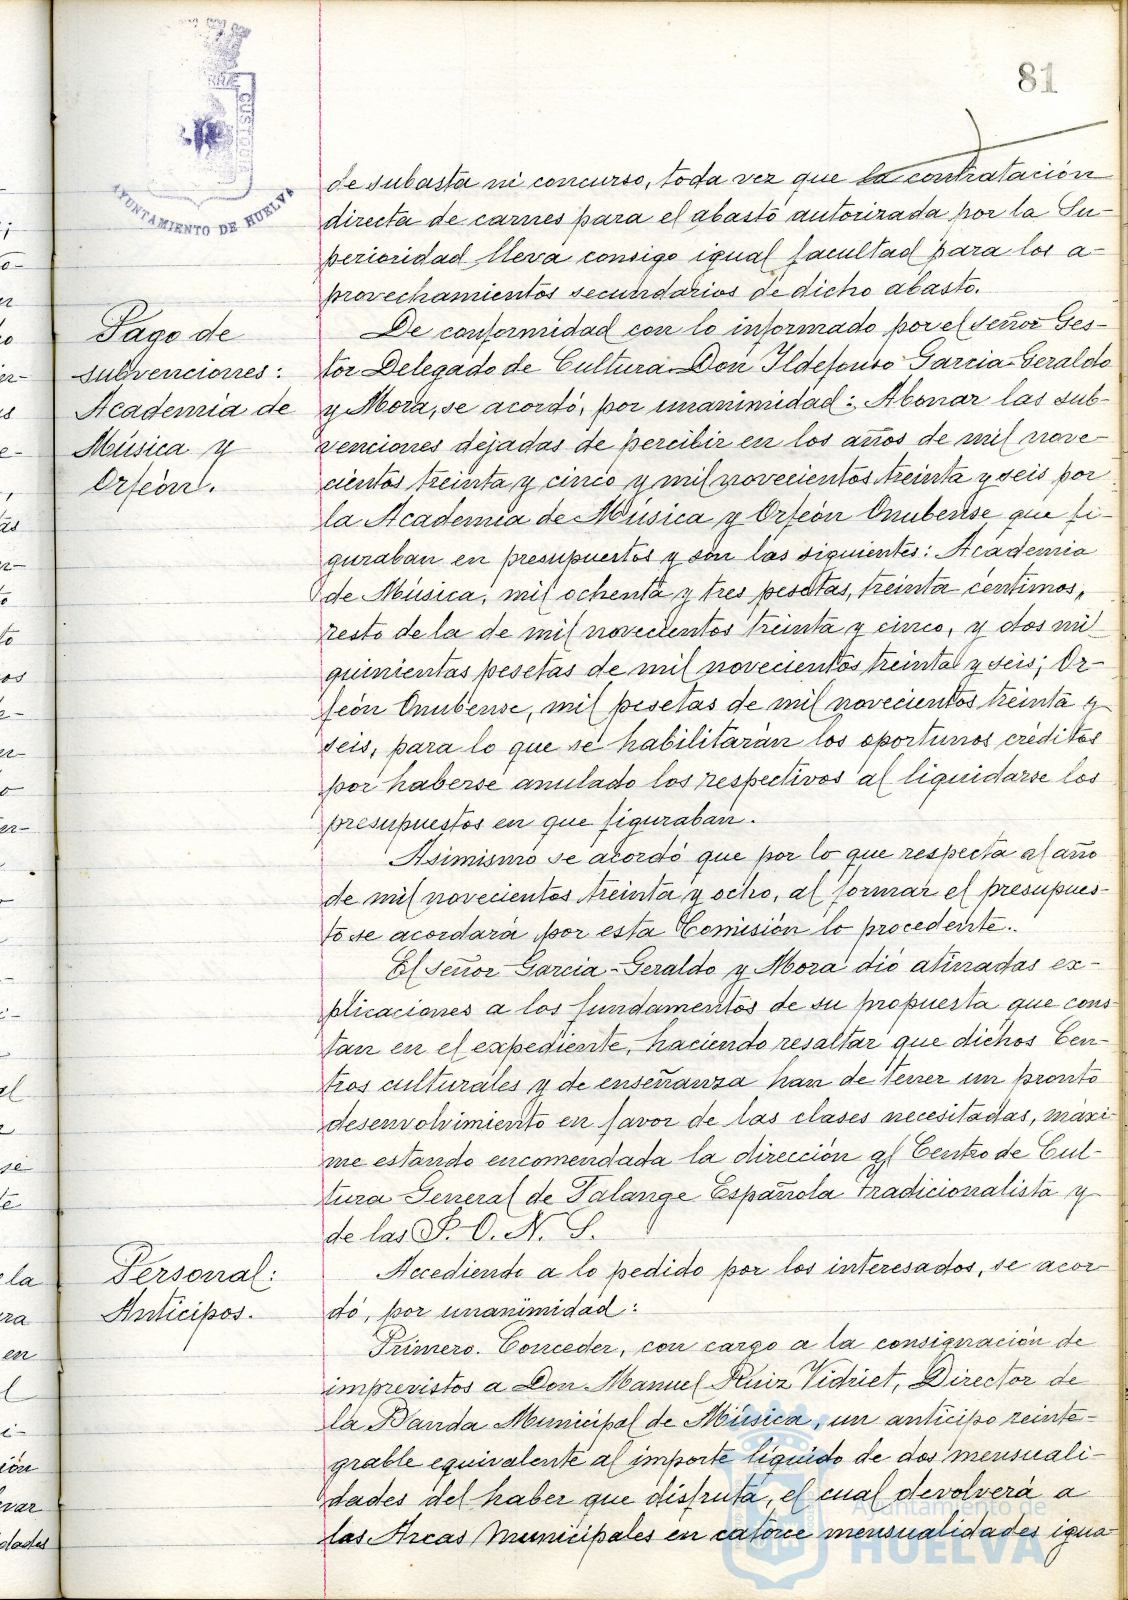 81
AYUNTAMIENTO DE HUELVA
de subasta ni concurso, toda vez que la contratación
directa de carnes para el abasto autorizada por la Su-
perioridad lleva consigo igual facultad para los a-
provechamientos secundarios de dicho abasto.
Pago de
subvenciones:
Academia de
Música y
Orfeón.
De conformidad con lo informado por el señor Ges-
tor Delegado de Cultura Don Ildefonso Garcia-Geraldo
y Mora, se acordó, por unanimidad: Abonar las sub-
venciones dejadas de percibir en los años de mil nove-
cientos treinta y cinco y mil novecientos treinta y seis por
la Academia de Música y Orfeón Onubense que fi-
guraban en presupuestos y son las siguientes: Academia
de Música, mil ochenta y tres pesetas, treinta céntimos,
resto de la de mil novecientos treinta y cinco, y dos mil
quinientas pesetas de mil novecientos treinta y seis; Or-
feón Onubense, mil pesetas de mil novecientos treinta y
seis, para lo que se habilitarán los oportunos créditos
por haberse anulado los respectivos al liquidarse los
presupuestos en que figuraban.
Asimismo se acordó que por lo que respecta al año
de mil novecientos treinta y ocho, al formar el presupues-
to se acordará por esta Comisión lo procedente.
El señor Garcia-Geraldo y Mora dió atinadas ex-
plicaciones a los fundamentos de su propuesta que cons-
tan en el expediente, haciendo resaltar que dichos Cen-
tros culturales y de enseñanza han de tener un pronto
desenvolvimiento en favor de las clases necesitadas, máxi-
me estando encomendada la dirección al Centro de Cul-
tura General de Falange Española Tradicionalista y
de las J. O. N. S.
Personal:
Anticipos.
Accediendo a lo pedido por los interesados, se acor-
dó, por unanimidad:
Primero. Conceder, con cargo a la consignación de
imprevistos a Don Manuel Ruiz Vidriet, Director de
la Banda Municipal de Música, un anticipo reinte-
grable equivalente al importe líquido de dos mensuali-
dades del haber que disfruta, el cual devolverá a
las Arcas Municipales en catorce mensualidades igua-
Ayuntamiento de
HUELVA